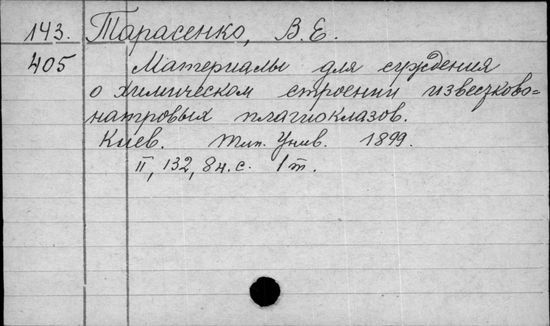 143. Тарасенко, В. Е.
405 Материалы для суждения
о химическом строении известково=
натровых плагиоклазов.
Киев. Тип. Унив. 1899.
II, 132, 8 н. с. 1 т.